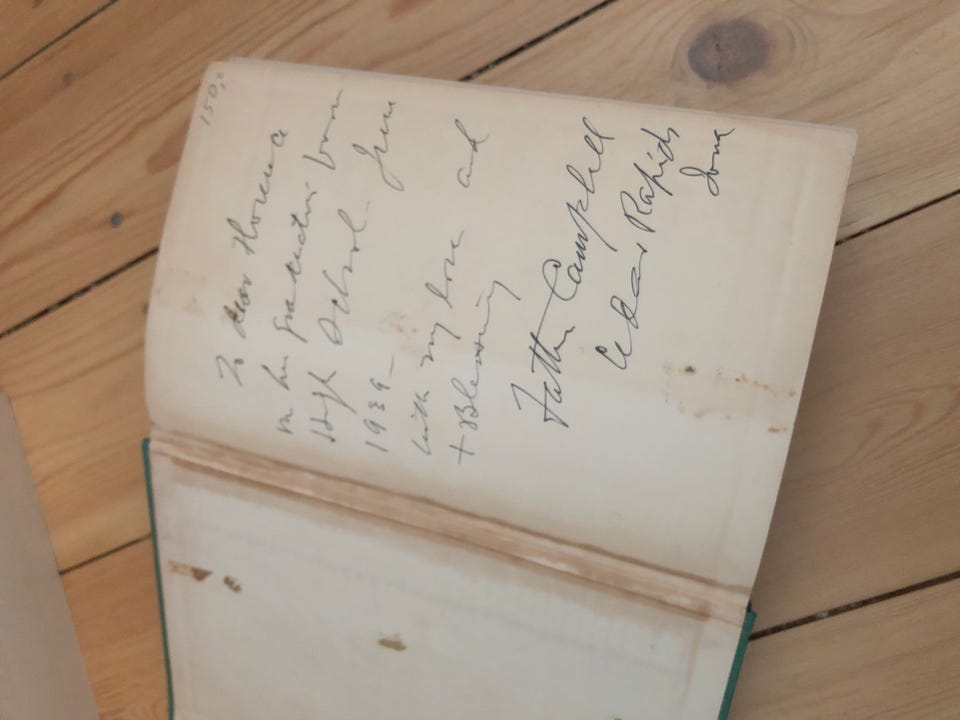 150,-
To dear Florence
on her graduation from
High School - June
1939 -
with my love and
+ Blessing
Father Campbell
Cedar Rapids
Iowa